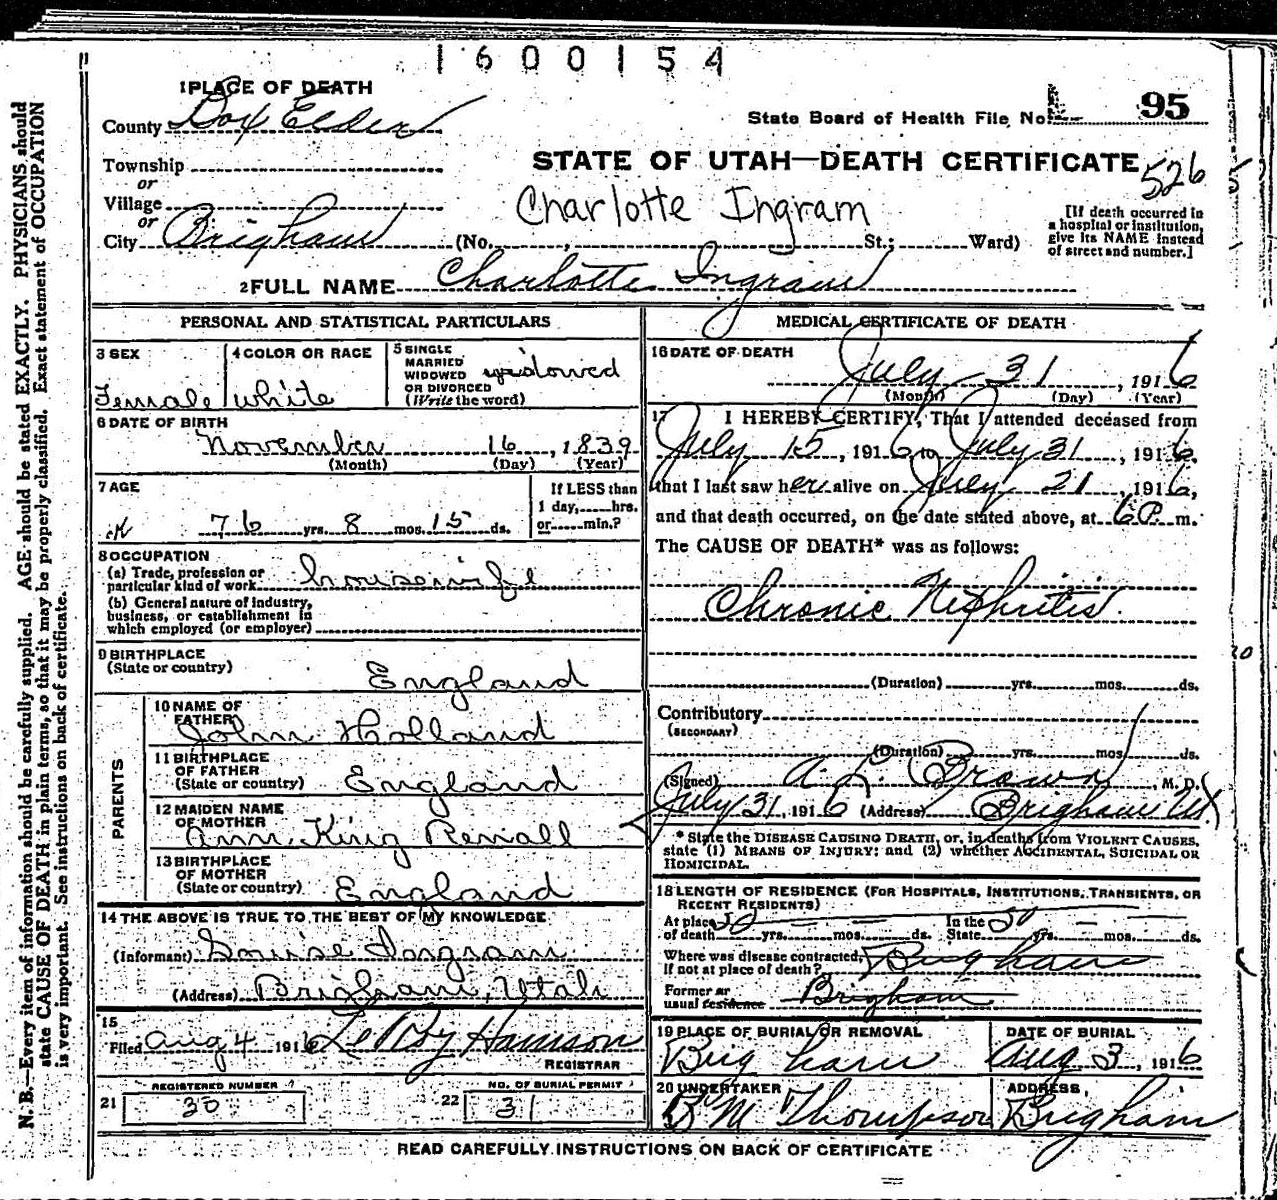 1600154
1 PLACE OF DEATH
County Box Elder
State Board of Health File No. 95
Township
or
Village
or
City Brigham
STATE OF UTAH—DEATH CERTIFICATE
526
Charlotte Ingram
(No. , St.; Ward)
[If death occurred in
a hospital or institution,
give its NAME instead
of street and number.]
2 FULL NAME Charlotte Ingram
PERSONAL AND STATISTICAL PARTICULARS
3 SEX
Female
4 COLOR OR RACE
white
5 SINGLE
MARRIED
WIDOWED
OR DIVORCED
(Write the word)
widowed
6 DATE OF BIRTH
November 16, 1839
(Month) (Day) (Year)
7 AGE
76 yrs. 8 mos. 15 ds.
If LESS than
1 day, hrs.
or min.?
8 OCCUPATION
(a) Trade, profession or
particular kind of work housewife
(b) General nature of industry,
business, or establishment in
which employed (or employer)
9 BIRTHPLACE
(State or country)
England
PARENTS
10 NAME OF
FATHER
John Holland
11 BIRTHPLACE
OF FATHER
(State or country) England
12 MAIDEN NAME
OF MOTHER
Ann King
13 BIRTHPLACE
OF MOTHER
(State or country) England
14 THE ABOVE IS TRUE TO THE BEST OF MY KNOWLEDGE
(Informant) Louise Ingram
(Address) Brigham, Utah
15
Filed Aug 4 1916 LeRoy Hamson
REGISTRAR
REGISTERED NUMBER
21 30
NO. OF BURIAL PERMIT
22 31
MEDICAL CERTIFICATE OF DEATH
16 DATE OF DEATH
July 31, 1916
(Month) (Day) (Year)
17 I HEREBY CERTIFY, That I attended deceased from
July 15, 1916 to July 31, 1916,
that I last saw her alive on July 21, 1916,
and that death occurred, on the date stated above, at 6 P. m.
The CAUSE OF DEATH* was as follows:
Chronic Nephritis.
(Duration) yrs. mos. ds.
Contributory
(SECONDARY)
(Duration) yrs. mos. ds.
(Signed) A. L. Brown, M. D.
July 31, 1916 (Address) Brigham Ut.
* State the DISEASE CAUSING DEATH, or, in deaths from VIOLENT CAUSES,
state (1) MEANS OF INJURY; and (2) whether ACCIDENTAL, SUICIDAL OR
HOMICIDAL.
18 LENGTH OF RESIDENCE (FOR HOSPITALS, INSTITUTIONS, TRANSIENTS, OR
RECENT RESIDENTS)
At place
of death 50 yrs. mos. ds.
In the
State 50 yrs. mos. ds.
Where was disease contracted,
if not at place of death? Brigham
Former or
usual residence Brigham
19 PLACE OF BURIAL OR REMOVAL
Brigham
DATE OF BURIAL
Aug 3, 1916
20 UNDERTAKER
B M Thompson
ADDRESS
Brigham
READ CAREFULLY INSTRUCTIONS ON BACK OF CERTIFICATE
N. B.—Every item of information should be carefully supplied. AGE should be stated EXACTLY. PHYSICIANS should
state CAUSE OF DEATH in plain terms, so that it may be properly classified. Exact statement of OCCUPATION
is very important. See instructions on back of certificate.